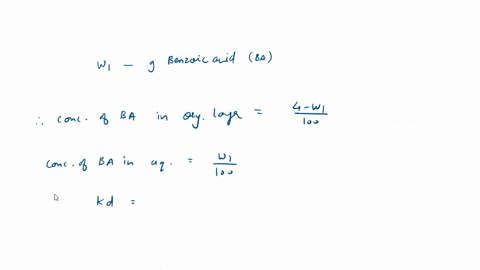 W1 — g Benzoic acid (BA)
∴ conc. of BA in org. layer = 4-W1/100
conc. of BA in aq. = W1/100
kd =